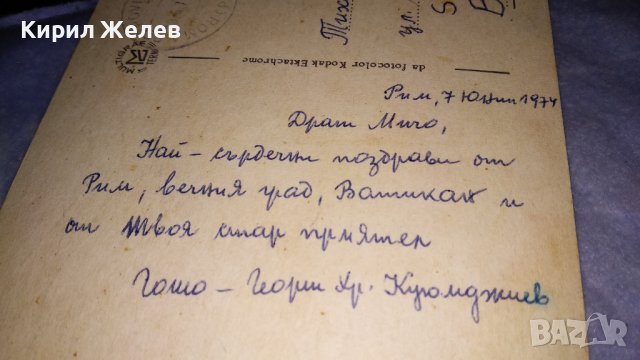 Кирил Желев
MULTIGRAF
TERNI
da fotocolor Kodak Ektachrome
Тих
ул.
Рим, 7 Юнии 1974
Драги Мичо,
Най-сърдечни поздрави от
Рим, вечния град, Ватикан и
от твоя стар приятел
Гошо - Георги Хр. Куюмджиев
bazar.bg